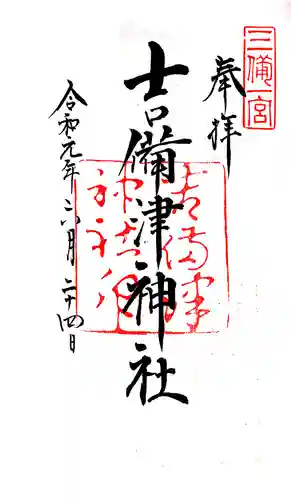 三備一宮
奉拝
吉備津神社
令和元年六月二十四日
吉備津
神社